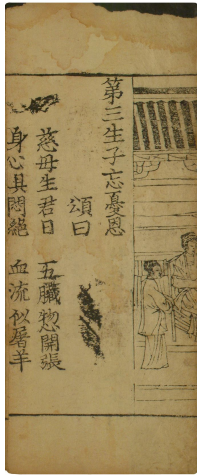 第三生子忘憂恩
頌曰
慈母生君日　五臟惣開張
身心具悶絕　血流似屠羊